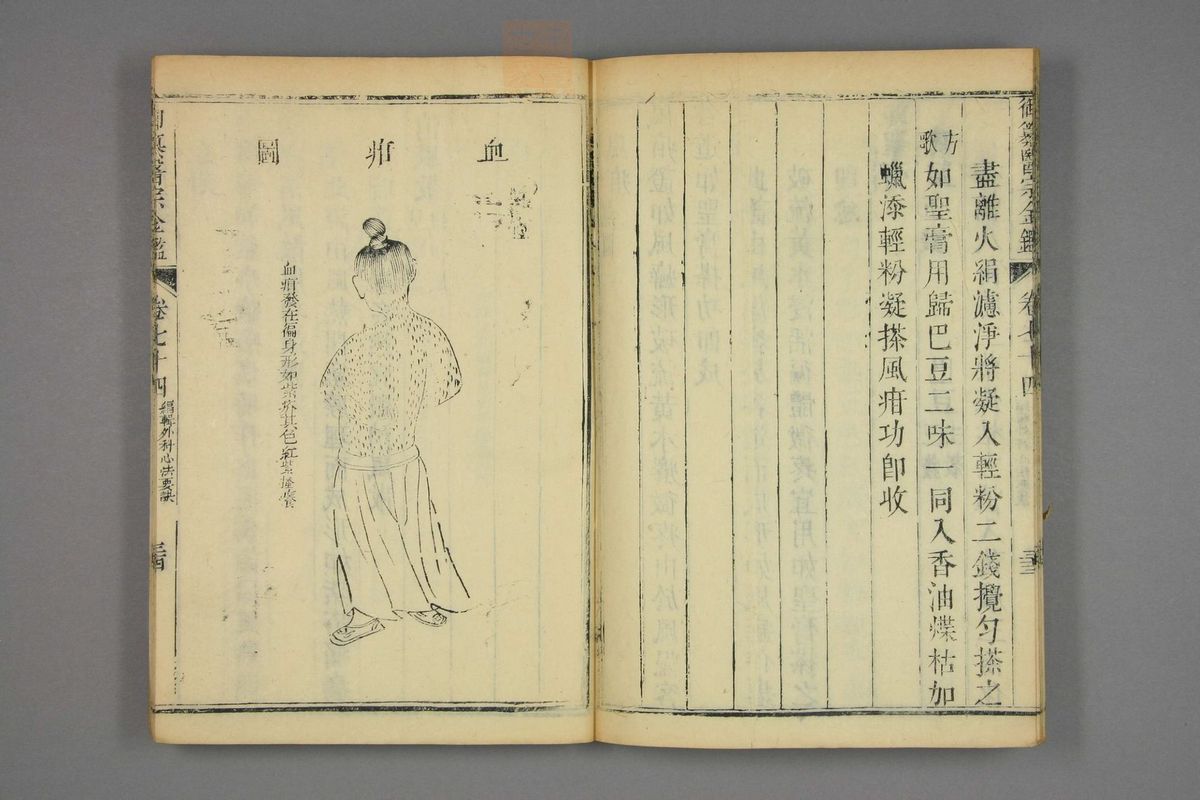 御纂醫宗金鑑 卷七十四 三十三
盡離火絹濾淨將凝入輕粉二錢攪匀搽之
方歌
如聖膏用歸巴豆二味一同入香油煠枯加
蠟添輕粉凝搽風疳功即收
血疳圖
血疳發在徧身形如紫疥其色紅紫
醫宗金鑑 卷七十四 編輯外科心法要訣 三十四